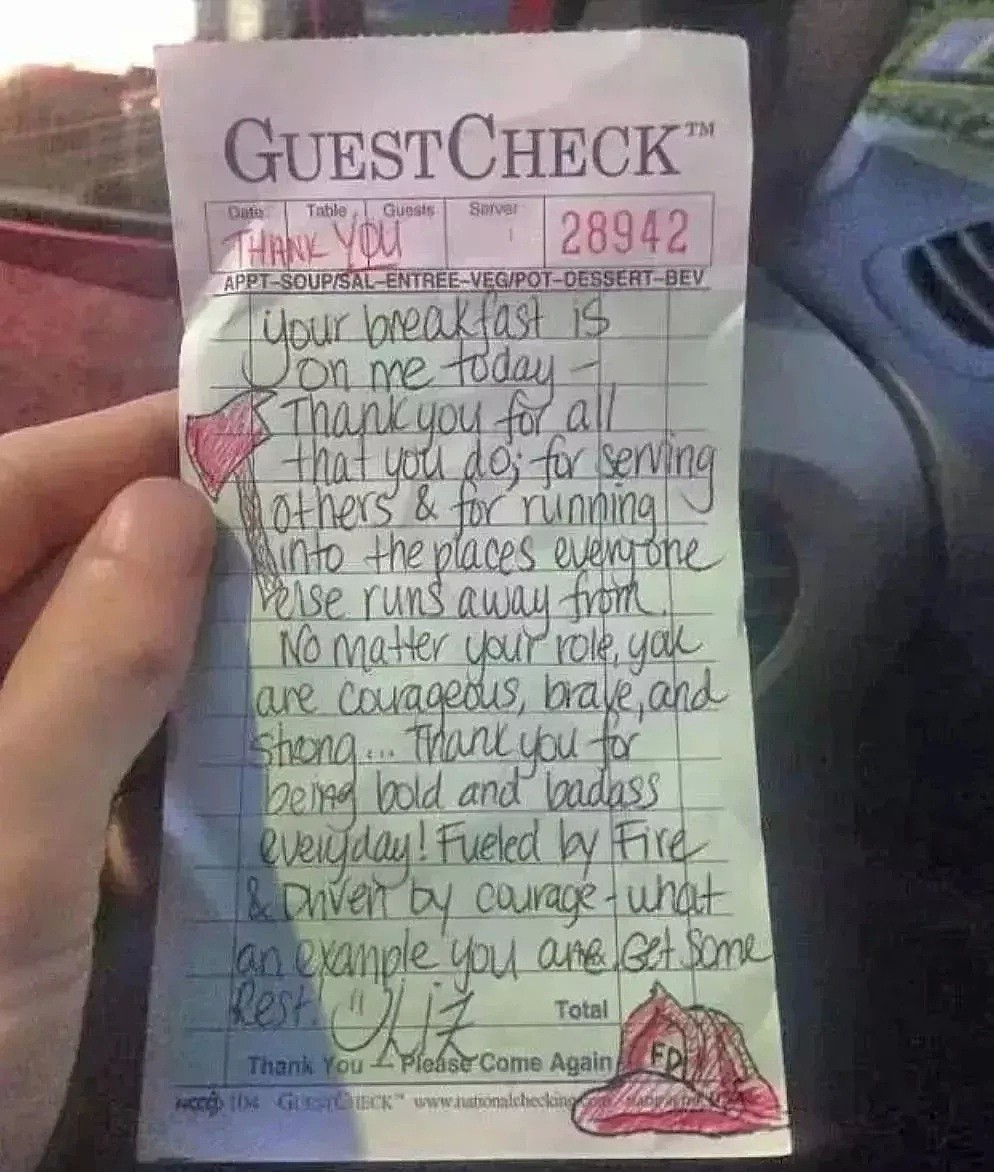 GUESTCHECK™
Date Table Guests Server
THANK YOU 28942
APPT-SOUP/SAL-ENTREE-VEG/POT-DESSERT-BEV
your breakfast is
on me today -
Thank you for all
that you do; for serving
others & for running
into the places everyone
else runs away from.
No matter your role, you
are courageous, brave, and
strong... Thank you for
being bold and badass
everyday! Fueled by Fire
& Driven by courage - what
an example you are. Get Some
Rest! Liz
Total
FD
Thank You - Please Come Again
GUESTCHECK™ www.nationalchecking